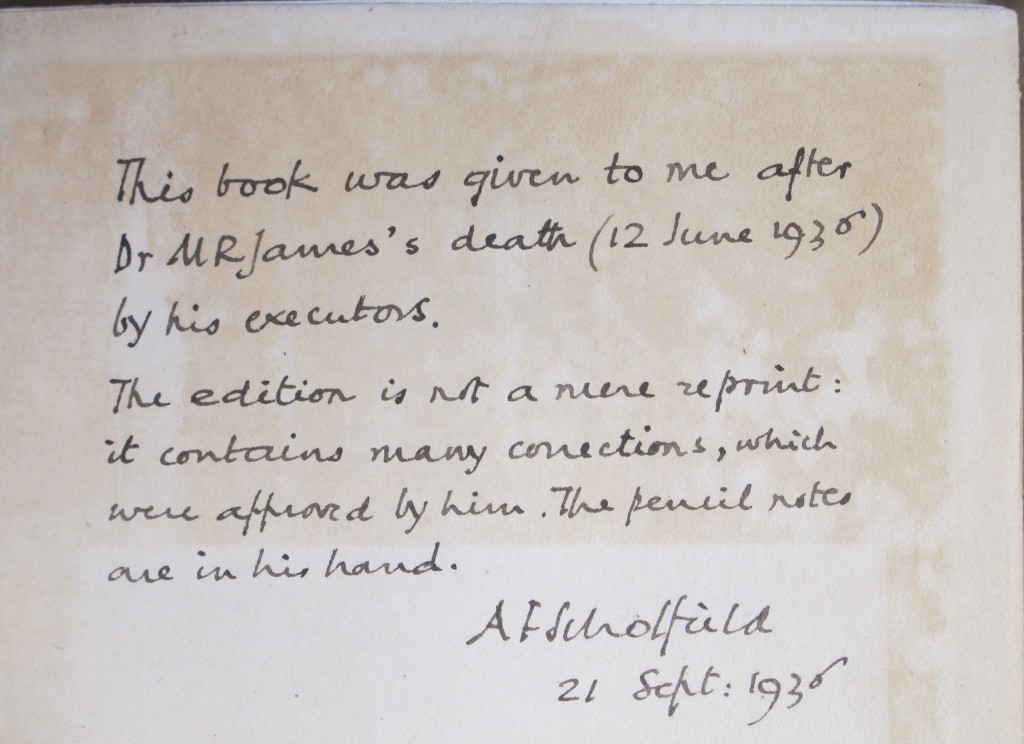 This book was given to me after
Dr MR James's death (12 June 1936)
by his executors.
The edition is not a mere reprint:
it contains many corrections, which
were approved by him. The pencil notes
are in his hand.
A F Scholfield
21 Sept: 1936